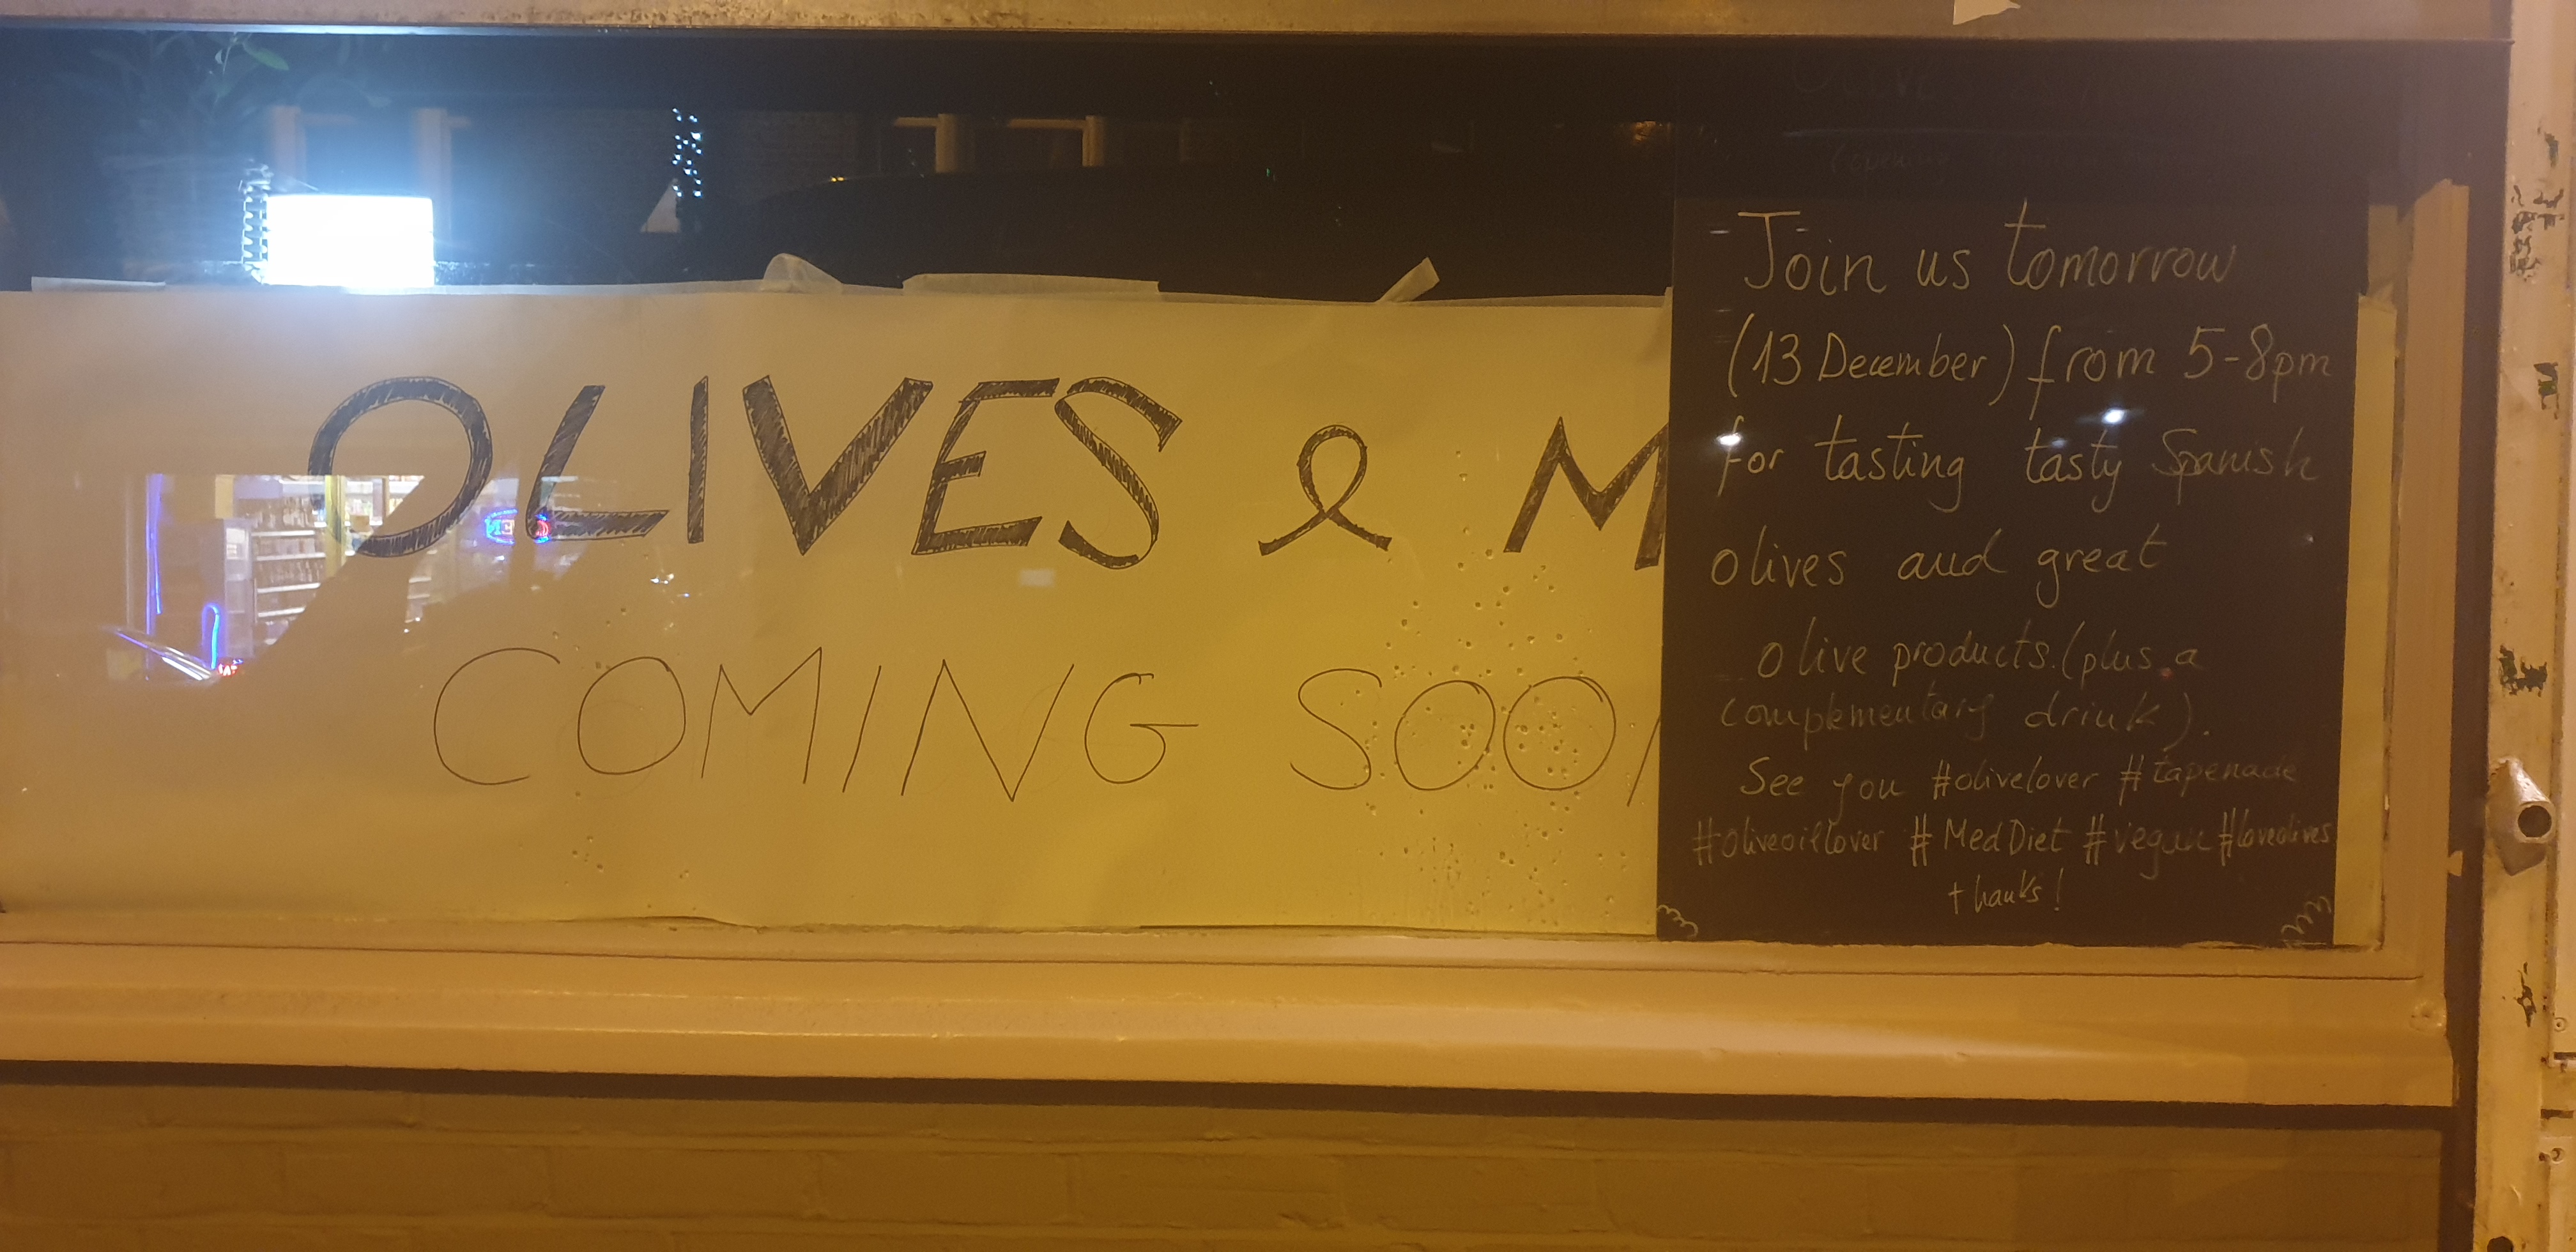 OLIVES & M
COMING SOO
Join us tomorrow
(13 December) from 5-8pm
for tasting tasty Spanish
olives and great
olive products. (plus a
complementary drink).
See you #olivelover #tapenade
#oliveoillover #MedDiet #vegan #loveolives
thanks!
OPEN